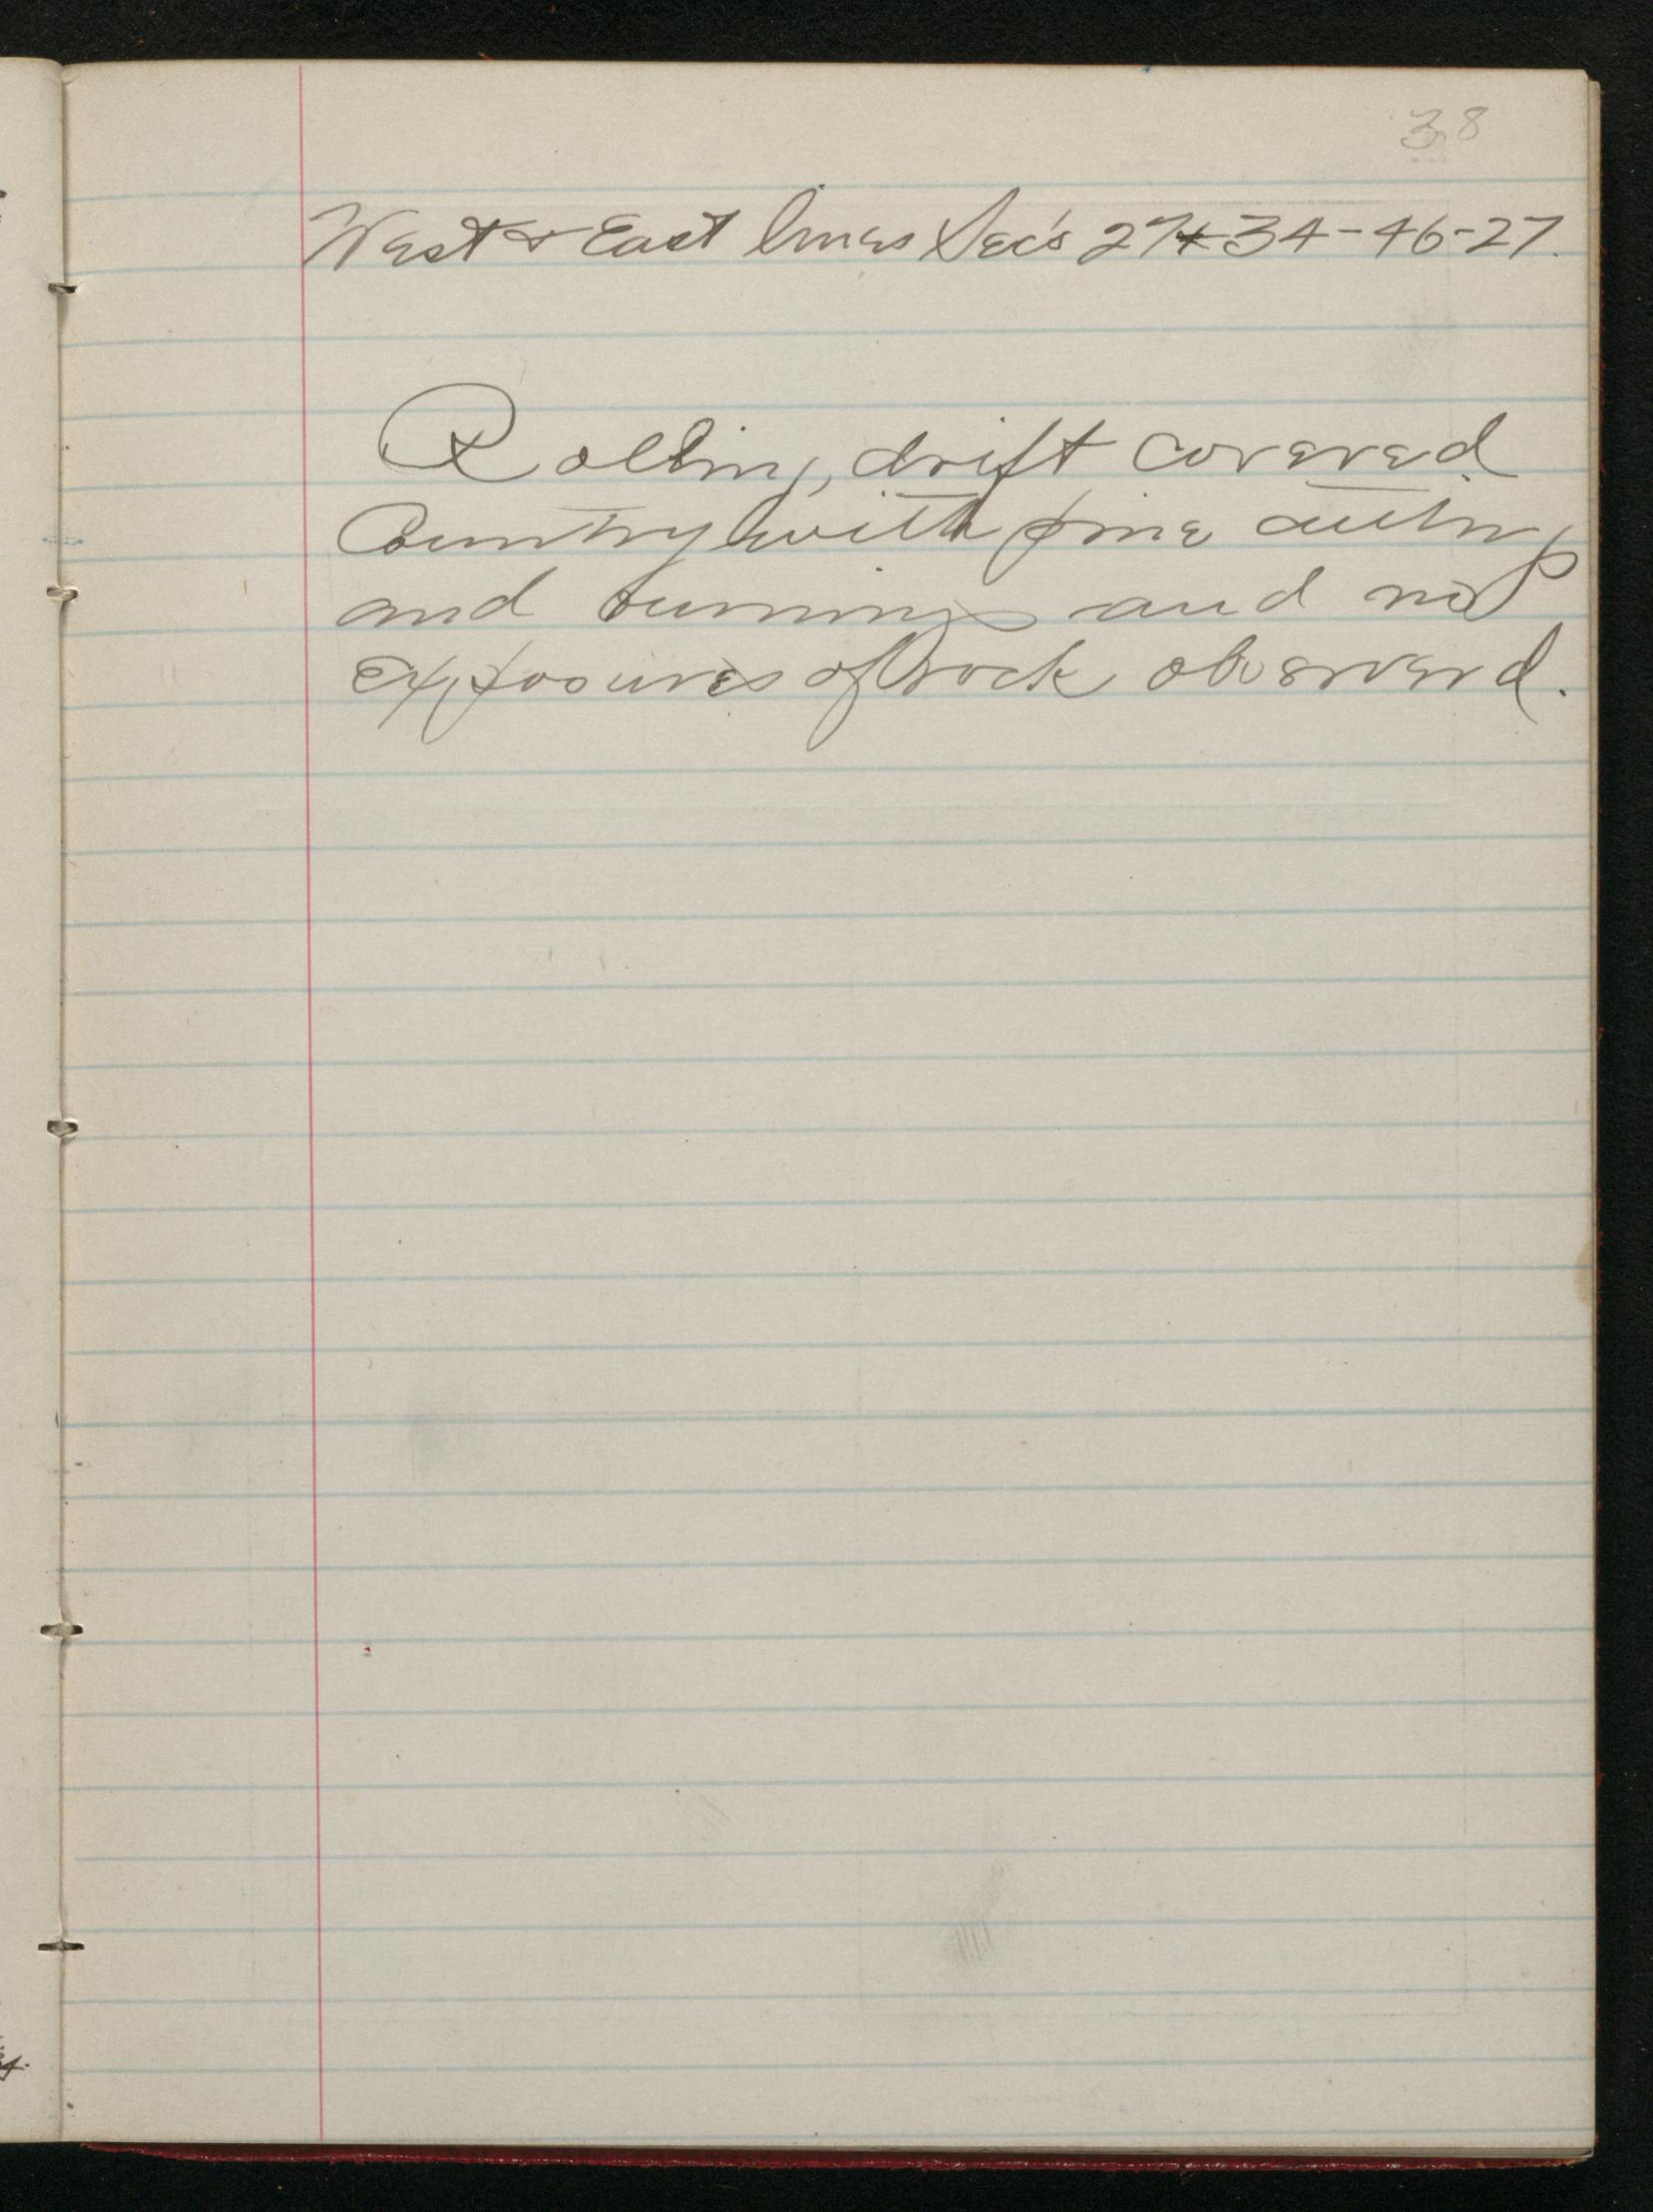 38
West & East lines Sec's 27 & 34-46-27.
Rolling, drift covered
Country with pine cutting
and burnings and no
exposures of rock observed.